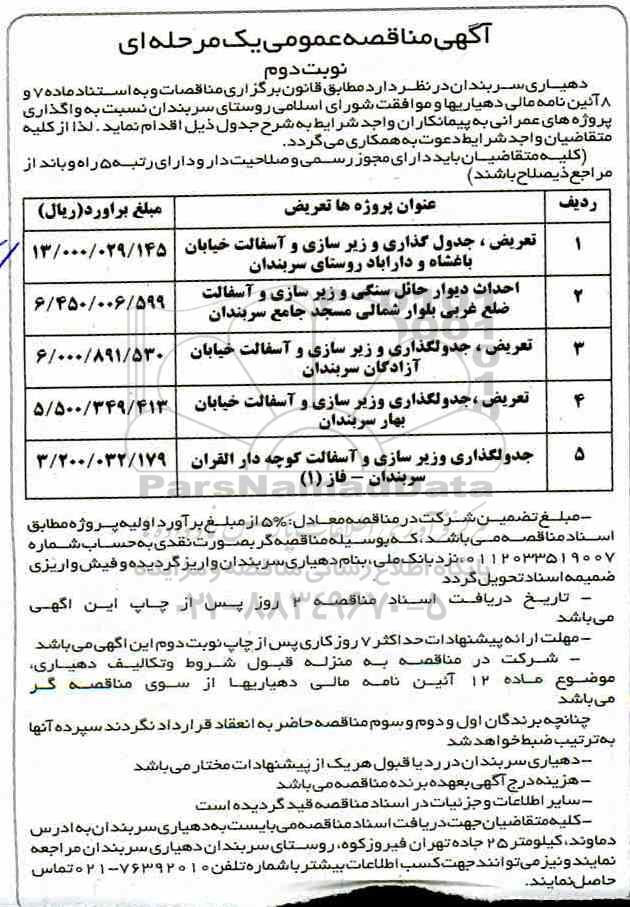 آگهی مناقصه عمومی یک مرحله ای
نوبت دوم
دهیاری سربندان در نظر دارد مطابق قانون برگزاری مناقصات و به استناد ماده ۷ و
۸ آئین نامه مالی دهیاریها و موافقت شورای اسلامی روستای سربندان نسبت به واگذاری
پروژه های عمرانی به پیمانکاران واجد شرایط به شرح جدول ذیل اقدام نماید. لذا از کلیه
متقاضیان واجد شرایط دعوت به همکاری می گردد.
(کلیه متقاضیان باید دارای مجوز رسمی و صلاحیت دار و دارای رتبه ۵ راه و باند از
مراجع ذیصلاح باشند)
ردیف عنوان پروژه ها تعریض مبلغ براورد(ریال)
۱ تعریض ، جدول گذاری و زیر سازی و آسفالت خیابان ۱۳/۰۰۰/۰۲۹/۱۴۵
باغشاه و داراباد روستای سربندان
۲ احداث دیوار حائل سنگی و زیر سازی و آسفالت ۶/۴۵۰/۰۰۶/۵۹۹
ضلع غربی بلوار شمالی مسجد جامع سربندان
۳ تعریض ، جدولگذاری و زیر سازی و آسفالت خیابان ۶/۰۰۰/۸۹۱/۵۳۰
آزادگان سربندان
۴ تعریض ،جدولگذاری وزیر سازی و آسفالت خیابان ۵/۵۰۰/۳۴۹/۴۱۳
بهار سربندان
۵ جدولگذاری وزیر سازی و آسفالت کوچه دار القران ۳/۲۰۰/۰۳۲/۱۷۹
سربندان – فاز (۱)
ParsNamadData
– مبلغ تضمین شرکت در مناقصه معادل: ۵% از مبلغ برآورد اولیه پروژه مطابق
اسناد مناقصه می باشد، که بوسیله مناقصه گر بصورت نقدی به حساب شماره
۰۱۱۲۰۳۳۵۱۹۰۰۷ نزد بانک ملی، بنام دهیاری سربندان واریز گردیده و فیش واریزی
ضمیمه اسناد تحویل گردد
پایگاه اطلاع رسانی مناقصه و مزایده
– تاریخ دریافت اسناد مناقصه ۳ روز پس از چاپ این آگهی
می باشد
۰۲۱-۸۸۳۴۹۶۷۰-۵
– مهلت ارائه پیشنهادات حداکثر ۷ روز کاری پس از چاپ نوبت دوم این آگهی می باشد
– شرکت در مناقصه به منزله قبول شروط وتکالیف دهیاری،
موضوع ماده ۱۲ آئین نامه مالی دهیاریها از سوی مناقصه گر
می باشد
چنانچه برندگان اول و دوم و سوم مناقصه حاضر به انعقاد قرارداد نگردند سپرده آنها
به ترتیب ضبط خواهد شد
– دهیاری سربندان در رد یا قبول هر یک از پیشنهادات مختار می باشد
– هزینه درج آگهی بعهده برنده مناقصه می باشد
– سایر اطلاعات و جزئیات در اسناد مناقصه قید گردیده است
– کلیه متقاضیان جهت دریافت اسناد مناقصه می بایست به دهیاری سربندان به ادرس
دماوند، کیلومتر ۲۵ جاده تهران فیروزکوه، روستای سربندان دهیاری سربندان مراجعه
نمایند و نیز می توانند جهت کسب اطلاعات بیشتر با شماره تلفن ۷۶۳۹۲۰۱۰-۰۲۱ تماس
حاصل نمایند.